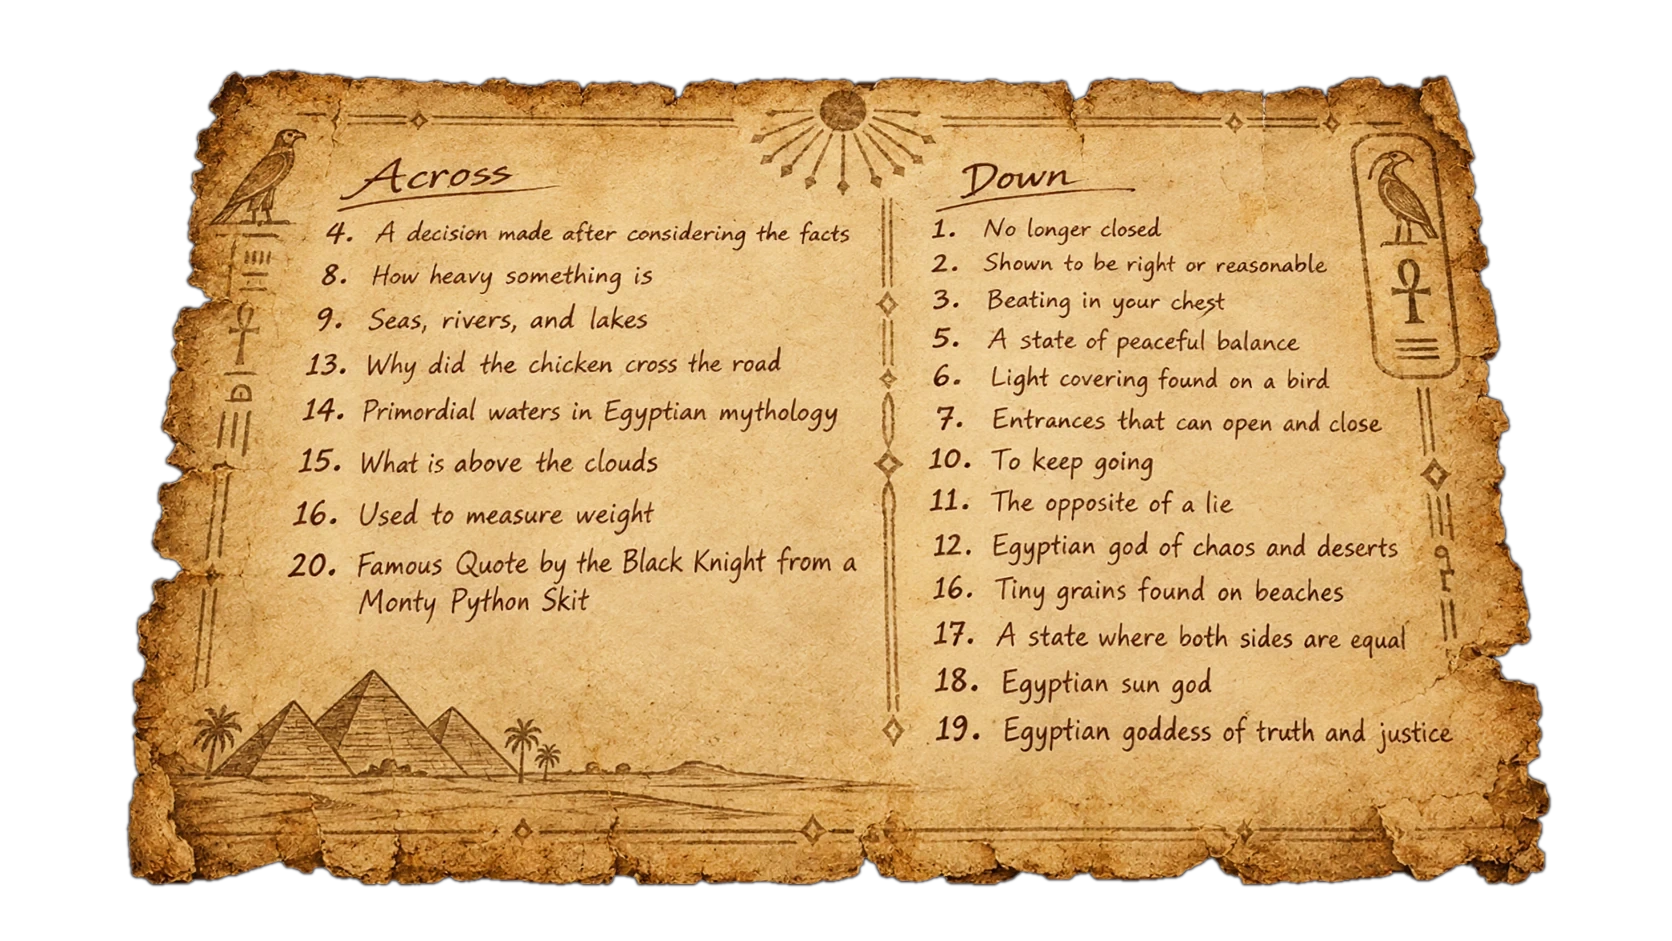 Across
4. A decision made after considering the facts
8. How heavy something is
9. Seas, rivers, and lakes
13. Why did the chicken cross the road
14. Primordial waters in Egyptian mythology
15. What is above the clouds
16. Used to measure weight
20. Famous Quote by the Black Knight from a
Monty Python Skit
Down
1. No longer closed
2. Shown to be right or reasonable
3. Beating in your chest
5. A state of peaceful balance
6. Light covering found on a bird
7. Entrances that can open and close
10. To keep going
11. The opposite of a lie
12. Egyptian god of chaos and deserts
16. Tiny grains found on beaches
17. A state where both sides are equal
18. Egyptian sun god
19. Egyptian goddess of truth and justice